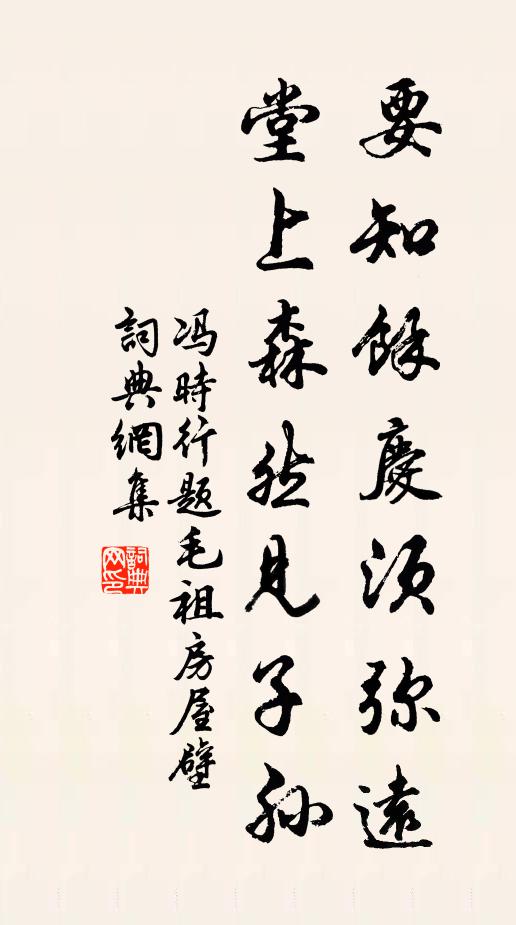 要知餘慶須弥遠
堂上森然見子孫
冯時行题毛祖房屋壁
詞典網集
詞典网印